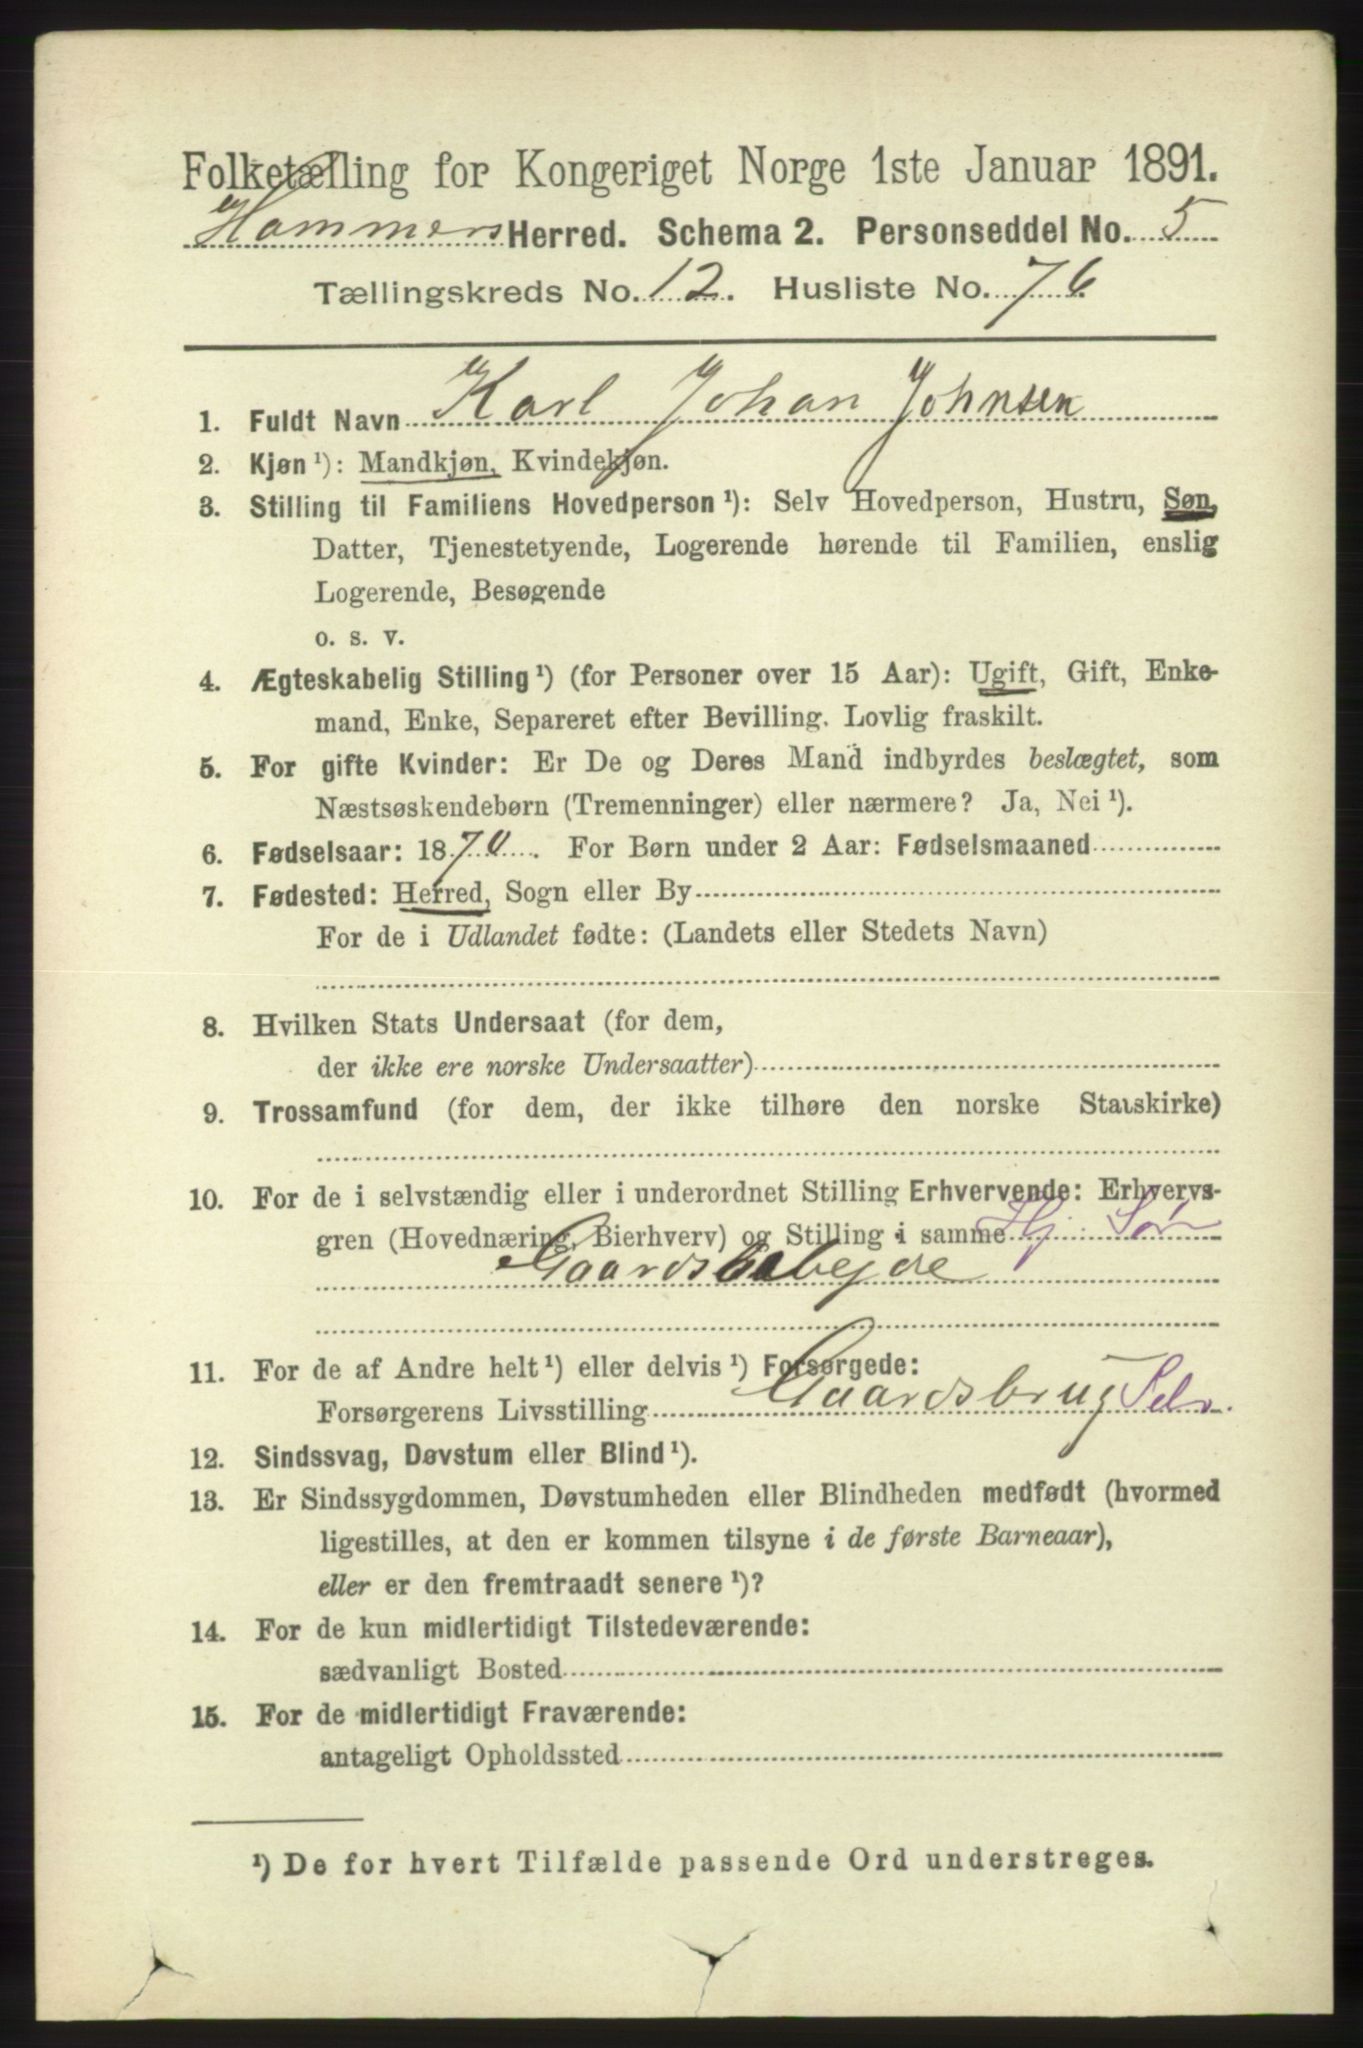 Folketælling for Kongeriget Norge 1ste Januar 1891.
Hammers Herred. Schema 2. Personseddel No. 5
Tællingskreds No. 12. Husliste No. 76
1. Fuldt Navn Karl Johan Johnsen
2. Kjøn ¹): Mandkjøn, Kvindekjøn.
3. Stilling til Familiens Hovedperson ¹): Selv Hovedperson, Hustru, Søn,
Datter, Tjenestetyende, Logerende hørende til Familien, enslig
Logerende, Besøgende
o. s. v.
4. Ægteskabelig Stilling ¹) (for Personer over 15 Aar): Ugift, Gift, Enke-
mand, Enke, Separeret efter Bevilling. Lovlig fraskilt.
5. For gifte Kvinder: Er De og Deres Mand indbyrdes beslægtet, som
Næstsøskendebørn (Tremenninger) eller nærmere? Ja, Nei ¹).
6. Fødselsaar: 1870. For Børn under 2 Aar: Fødselsmaaned
7. Fødested: Herred, Sogn eller By
For de i Udlandet fødte: (Landets eller Stedets Navn)
8. Hvilken Stats Undersaat (for dem,
der ikke ere norske Undersaatter)
9. Trossamfund (for dem, der ikke tilhøre den norske Statskirke)
10. For de i selvstændig eller i underordnet Stilling Erhvervende: Erhvervs-
gren (Hovednæring, Bierhverv) og Stilling i samme Hj. Søn
Gaardsarbejde
11. For de af Andre helt ¹) eller delvis ¹) Forsørgede:
Forsørgerens Livsstilling Gaardsbrug Selv.
12. Sindssvag, Døvstum eller Blind ¹).
13. Er Sindssygdommen, Døvstumheden eller Blindheden medfødt (hvormed
ligestilles, at den er kommen tilsyne i de første Barneaar),
eller er den fremtraadt senere ¹)?
14. For de kun midlertidigt Tilstedeværende:
sædvanligt Bosted
15. For de midlertidigt Fraværende:
antageligt Opholdssted
¹) De for hvert Tilfælde passende Ord understreges.